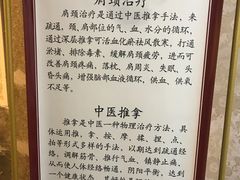 肩颈治疗
肩颈治疗是通过中医推拿手法，来
疏通，颈、肩部位的气、血、水分的循环，
通过深层推拿可活血化瘀祛风散寒，打通
淤堵、排除毒素，缓解肩颈疲劳，进而可
改善肩颈疼痛，落枕，肩周炎、失眠、头
昏头痛，增强脑部血液循环，供血、供氧
不足等。
中医推拿
推拿是中医一种物理治疗方法，具
体运用推、拿、按、摩、揉、捏、点、
拍等形式多样的手法，以期达到疏通经
络，调解筋骨，推行气血、镇静止痛，
从而使人体经络畅通，阴阳平衡，达到
一个健康状态